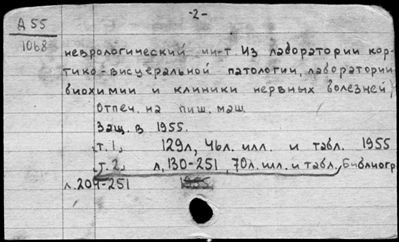 -2-
А 55
1068
неврологический ин-т Из лаборатории кор-
тико-висцеральной патологии, лаборатории
биохимии и клиники нервных болезней,
Отпеч. на пиш. маш.
Защ. в 1955.
т. 1, 129л, 46л. илл. и табл. 1955
т. 2, л, 130-251, 70л. илл. и табл, Библиогр
л. 204-251 1955.